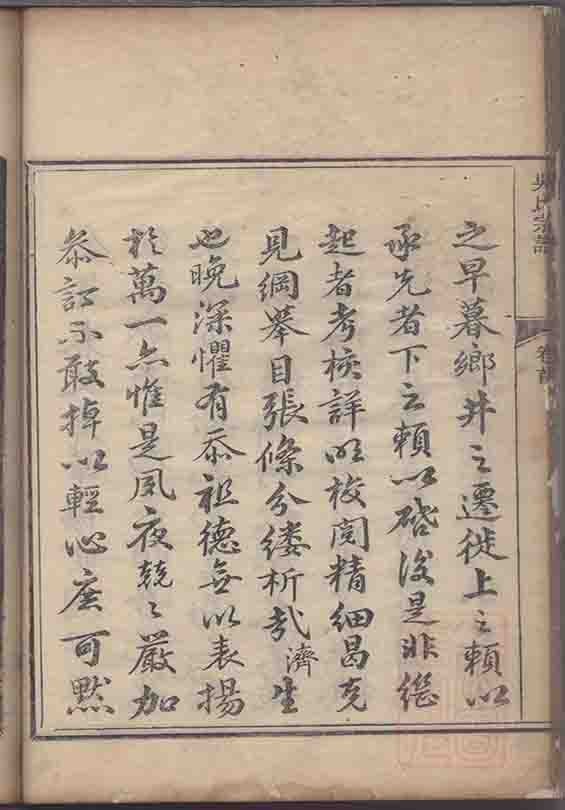 之早暮鄉井之遷徙上之賴以
承先者下之賴以啓後是非繼
起者考核詳明校閱精細曷克
見綱舉目張條分縷析哉濟生
也晚深懼有忝祖德無以表揚
於萬一亦惟是夙夜兢〻嚴加
叅訂不敢掉以輕心庶可默
吳氏宗譜
卷首